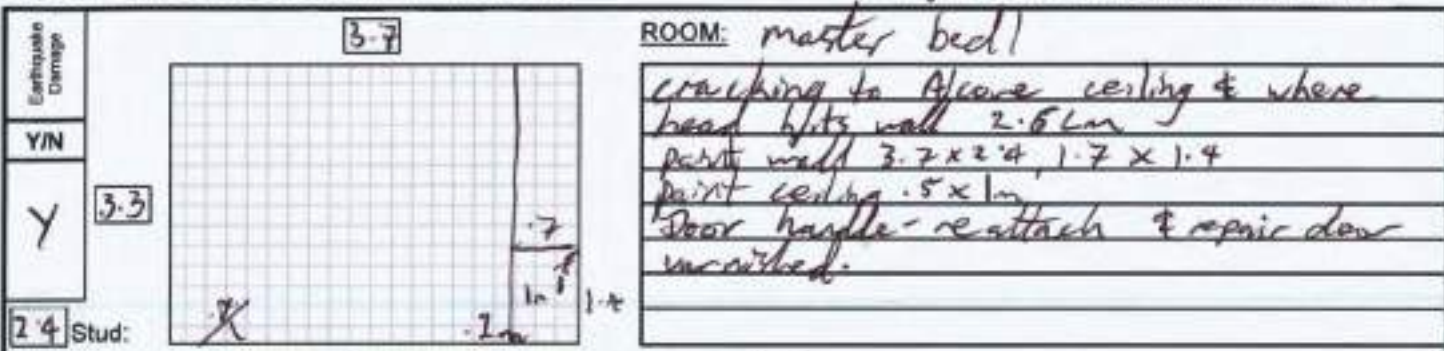 Earthquake Damage
Y/N
Y
2.4 Stud:
3.7
3.3
.7
1m
1.4
ROOM: master bed 1
cracking to Alcove ceiling & where
head hits wall 2.6 Lm
paint wall 3.7 x 2.4, 1.7 x 1.4
paint ceiling .5 x 1m
Door handle - reattach & repair door
varnished.